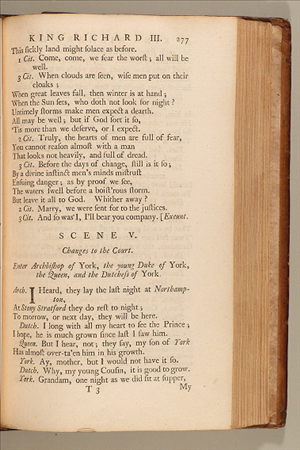 KING RICHARD III. 277
This ſickly land might ſolace as before.
1 Cit. Come, come, we fear the worſt; all will be
well.
3 Cit. When clouds are ſeen, wiſe men put on their
cloaks;
When great leaves fall, then winter is at hand;
When the Sun ſets, who doth not look for night?
Untimely ſtorms make men expect a dearth.
All may be well; but if God ſort it ſo,
'Tis more than we deſerve, or I expect.
2 Cit. Truly, the hearts of men are full of fear,
You cannot reaſon almoſt with a man
That looks not heavily, and full of dread.
3 Cit. Before the days of change, ſtill is it ſo;
By a divine inſtinct men's minds miſtruſt
Enſuing danger; as by proof we ſee,
The waters ſwell before a boiſt'rous ſtorm.
But leave it all to God. Whither away?
2 Cit. Marry, we were ſent for to the juſtices.
3 Cit. And ſo was I, I'll bear you company. [Exeunt.
SCENE V.
Changes to the Court.
Enter Archbiſhop of York, the young Duke of York,
the Queen, and the Dutcheſs of York.
Arch. I Heard, they lay the laſt night at Northamp-
ton,
At Stony Stratford they do reſt to night;
To morrow, or next day, they will be here.
Dutch. I long with all my heart to ſee the Prince;
I hope, he is much grown ſince laſt I ſaw him.
Queen. But I hear, not; they ſay, my ſon of York
Has almoſt over-ta'en him in his growth.
York. Ay, mother, but I would not have it ſo.
Dutch. Why, my young Couſin, it is good to grow.
York. Grandam, one night as we did ſit at ſupper,
T 3 My